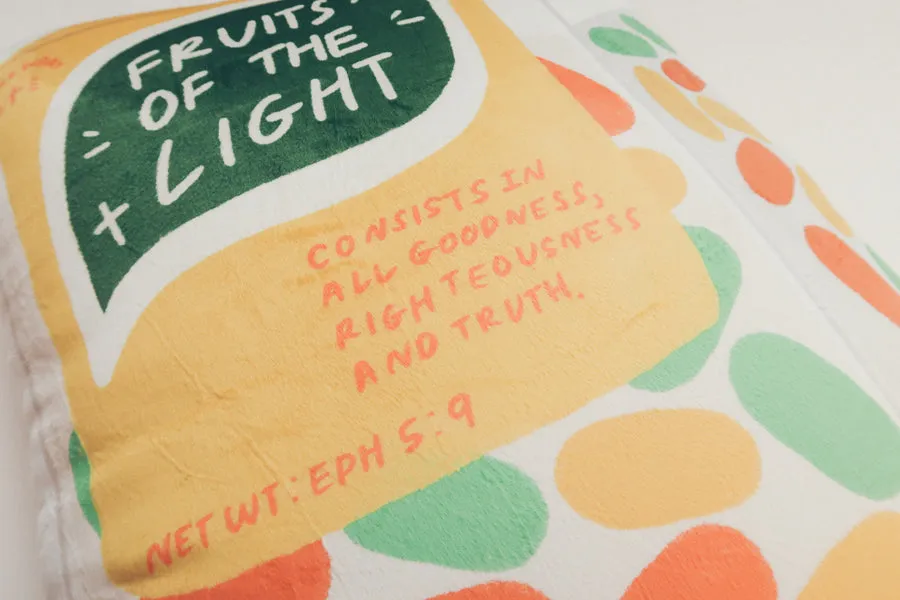 FRUITS
OF THE
+ LIGHT
CONSISTS IN
ALL GOODNESS,
RIGHTEOUSNESS
AND TRUTH.
NET WT: EPH 5:9